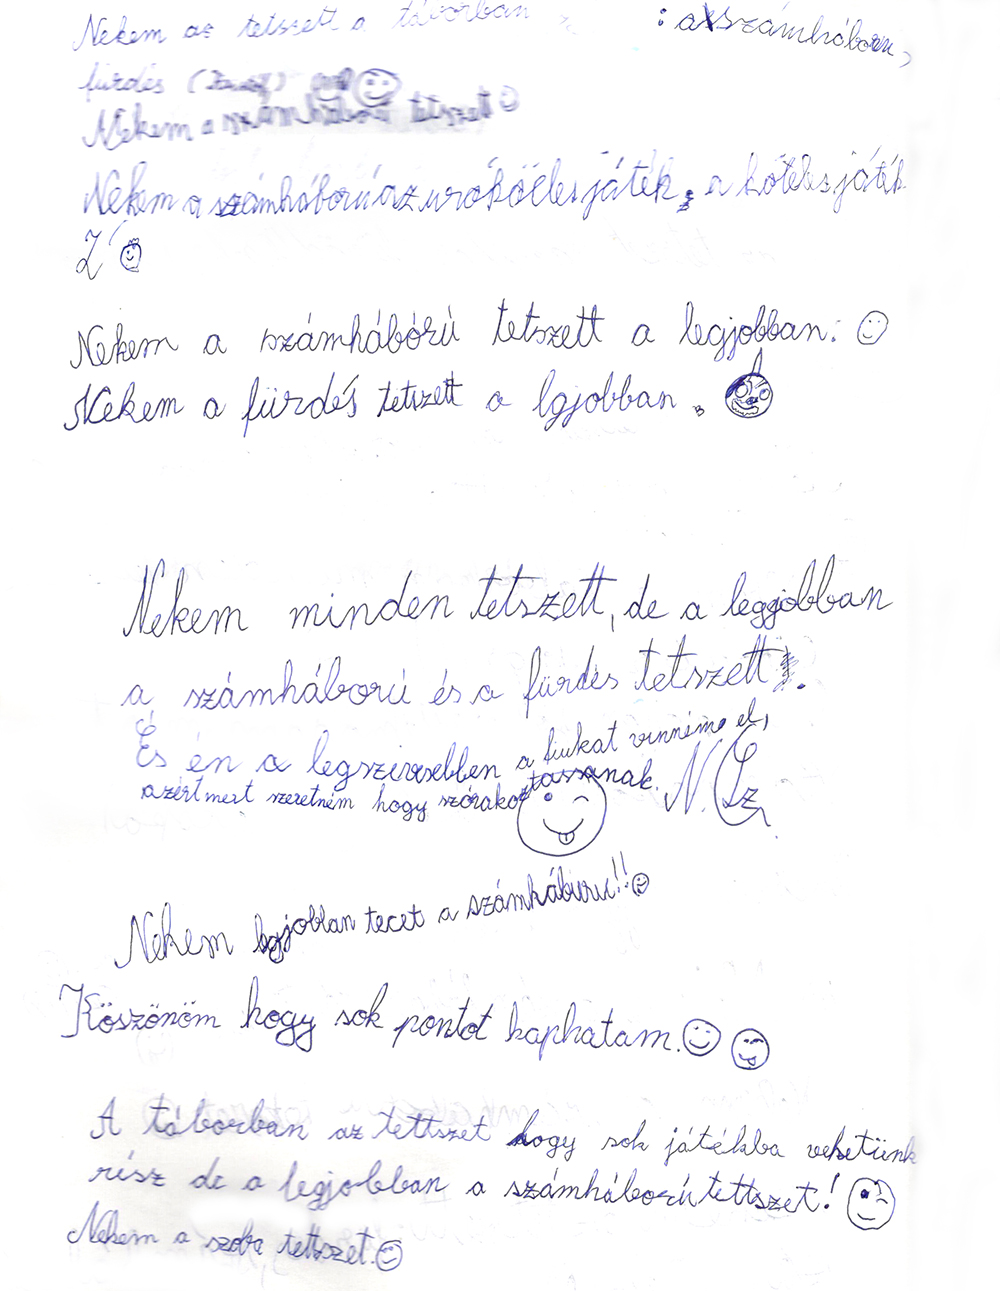 Nekem az tetszett a táborban : a számháború,
fürdés
Nekem a számháború tetszett
Nekem a számháború az játék, a köteles játék
Nekem a számháború tetszett a legjobban.
Nekem a fürdés tetszett a lgjobban.
Nekem minden tetszett, de a leggjobban
a számháború és a fürdés tetszett.
És én a legszivesebben a fiukat vinném el,
azért mert szeretném hogy szórakoztassanak. N. Sz
Nekem legjobban tecet a számháburu!!
Köszönöm hogy sok pontot kaphatam.
A táborban az tettszet hogy sok játékba vehetünk
rész de a legjobban a számháború tettszet!
Nekem a szoba tettszet.